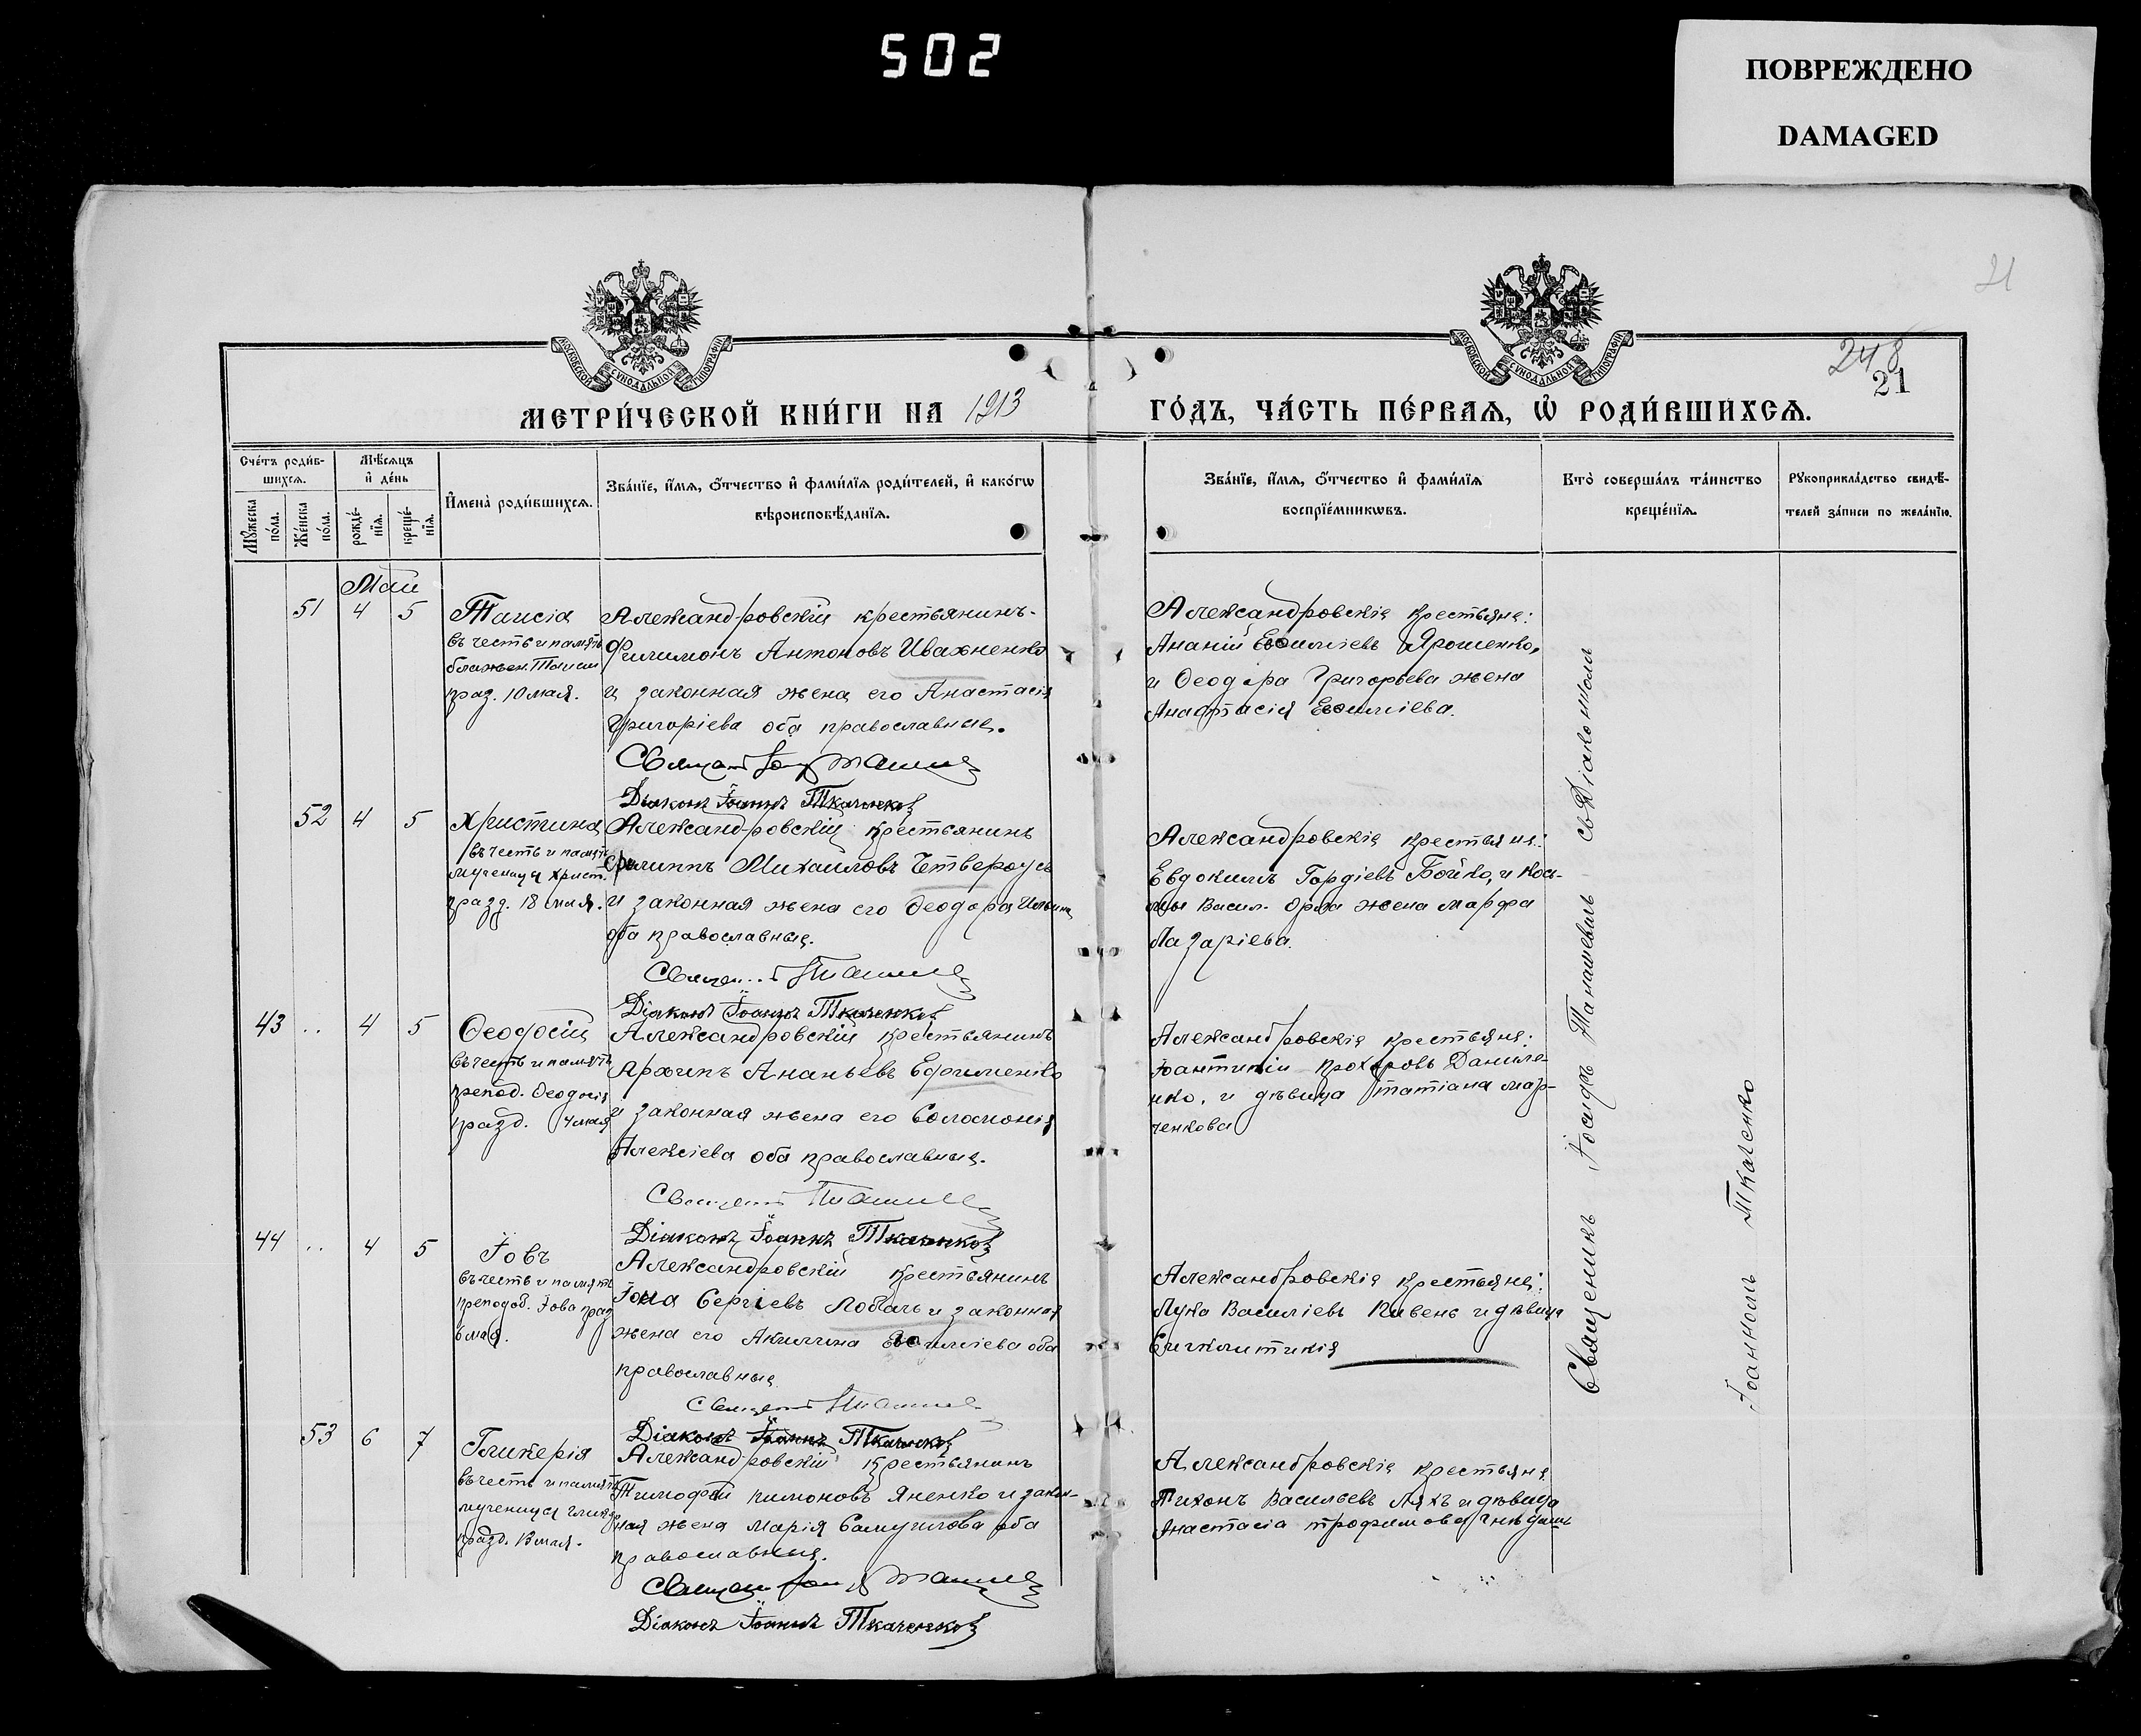 502
ПОВРЕЖДЕНО
DAMAGED
21
248
21
МОСКОВСКОЙ СУНОДАЛЬНОЙ ТИПОГРАФІИ
МОСКОВСКОЙ СУНОДАЛЬНОЙ ТИПОГРАФІИ
МЕТРИ́ЧЕСКОЙ КНИ́ГИ НА 1913
ГО́ДЪ, ЧА́СТЬ ПЕ́РВАѦ, Ѡ҆ РОДИ́ВШИХСѦ.
Сче́тъ роди́в-
шихсѧ.
Мѣ́сѧцъ
и҆ де́нь
Мꙋ́жеска
по́ла.
Же́нска
по́ла.
рожде́-
нїѧ.
креще́-
нїѧ.
И҆мена̀ роди́вшихсѧ.
Зва́нїе, и҆́мѧ, ѻ҆́тчество и҆ фами́лїѧ роди́телей, и҆ како́гѡ
вѣроисповѣ́данїѧ.
Зва́нїе, и҆́мѧ, ѻ҆́тчество и҆ фами́лїѧ
воспрїе́мникѡвъ.
Кто̀ соверша́лъ та́инство
креще́нїѧ.
Рꙋкоприкла́дство свидѣ́-
телей за́писи по жела́нїю.
Май
51 4 5
Таисія
въ честь и память
блажен. Таисіи
праз. 10 мая.
Александровскій крестьянинъ-
Филимонъ Антоновъ Ивахненко
и законная жена его Анастасія
Григоріева оба православные.
Діаконъ Іоаннъ Ткаченко
Александровскіе крестьяне:
Ананій Евѳиміевъ Ярошенко,
и Ѳеодора Григорьева жена
Анастасія Евѳиміева.
52 4 5
Христина
въ честь и память
мученицы Христ.
празд. 18 мая.
Александровскій крестьянинъ
Филиппъ Михайловъ Четвероусъ
и законная жена его Ѳеодора Ильина
оба православные.
Діаконъ Іоаннъ Ткаченко
Александровскіе крестьяне:
Евдокимъ Гордіевъ Бойко, и Коз-
мы Васил. Орла жена Марфа
Лазаріева.
43 .. 4 5
Ѳеодосій
въ честь и память
препод. Ѳеодосія
празд. 4 мая
Александровскій крестьянинъ
Архипъ Ананьевъ Ефименко
и законная жена его Соломонія
Алексіева оба православные.
Діаконъ Іоаннъ Ткаченко
Александровскіе крестьяне:
Іоантикій Прохоровъ Данилен-
ко, и дѣвица Татіана Мар-
ченкова
44 .. 4 5
Іовъ
въ честь и память
преподоб. Іова праз
6 мая.
Александровскій крестьянинъ
Іона Сергіевъ Лобачъ и законная
жена его Акилина Евѳиміева оба
православные
Діаконъ Іоаннъ Ткаченко
Александровскіе крестьяне:
Лука Василіевъ Пивень и дѣвица
Синклитикія
53 6 7
Гликерія
въ честь и память
мученицы Гликер
празд. 13 мая.
Александровскій крестьянинъ
Тимофей Пимоновъ Яненко и закон-
ная жена Марія Самуилова оба
православные.
Діаконъ Іоаннъ Ткаченко
Александровскіе крестьяне
Тихонъ Васильевъ Ляхъ и дѣвица
Анастасія Трофимова
Священникъ Іосифъ Танашевичъ съ Діакономъ
Іоанномъ Ткаченко